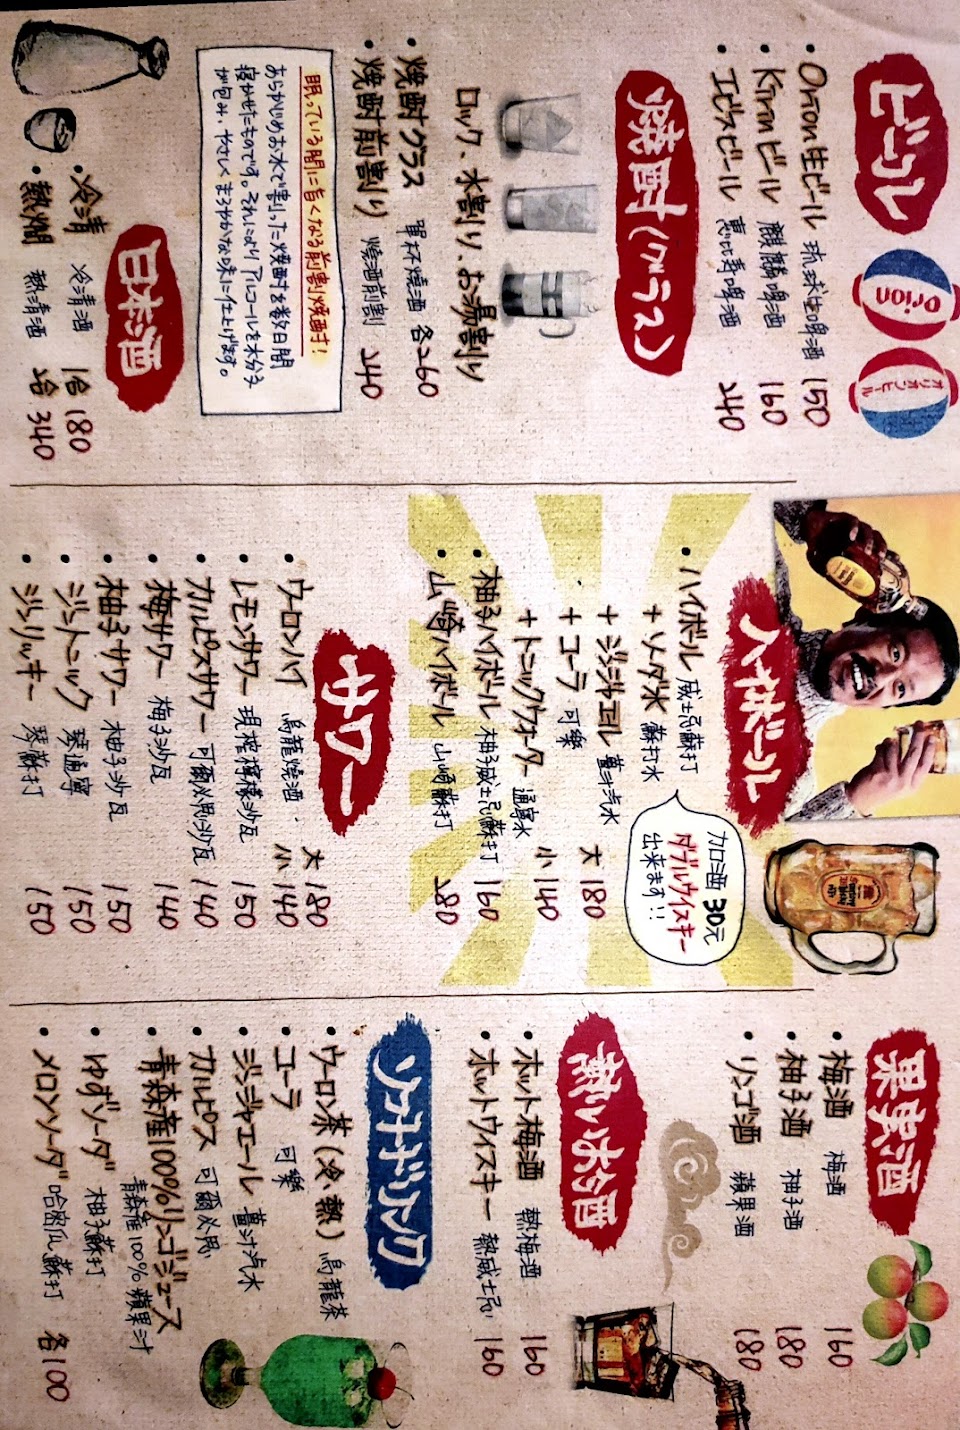 ビール
orion
オリオンビール
・Orion生ビール 琉球生啤酒 150
・Kirinビール 麒麟啤酒 160
・エビスビール 惠比壽啤酒 240
焼酎(グラス)
ロック、水割り、お湯割り
・焼酎グラス 單杯燒酒 各260
・焼酎前割り 燒酒前割 240
眠っている間に旨くなる前割焼酎!
あらかじめお水で割った焼酎を数日間
寝かせたものです。それによりアルコールを水分子
が包み、やさしくまろやかな味に仕上げます。
日本酒
・冷清 冷清酒 1合 180
・熱燗 熱清酒 2合 340
ハイボール
・ハイボール 威士忌蘇打
+ソーダ水 蘇打水
+ジンジャエール 薑汁汽水 大 180
+コーラ 可樂
+トニックウォーター 通寧水 小 140
・柚子ハイボール 柚子威士忌蘇打 160
・山崎ハイボール 山崎蘇打 280
カロミ酒 30元
ダブルウイスキー
出来ます!!
サワー
・ウーロンハイ 烏龍燒酒 大 180
小 140
・レモンサワー 現榨檸檬沙瓦 150
・カルピスサワー 可爾必思沙瓦 140
・梅サワー 梅子沙瓦 140
・柚子サワー 柚子沙瓦 150
・ジントニック 琴通寧 150
・ジンリッキー 琴蘇打 150
果実酒
・梅酒 梅酒 160
・柚子酒 柚子酒 180
・リンゴ酒 蘋果酒 180
熱いお酒
・ホット梅酒 熱梅酒 160
・ホットウイスキー 熱威士忌 160
ソフトドリンク
・ウーロン茶(冷、熱) 烏龍茶
・コーラ 可樂
・ジンジャエール 薑汁汽水
・カルピス 可爾必思
・青森産100%リンゴジュース
青森産100%蘋果汁
・ゆずソーダ 柚子蘇打
・メロンソーダ 哈密瓜蘇打 各100